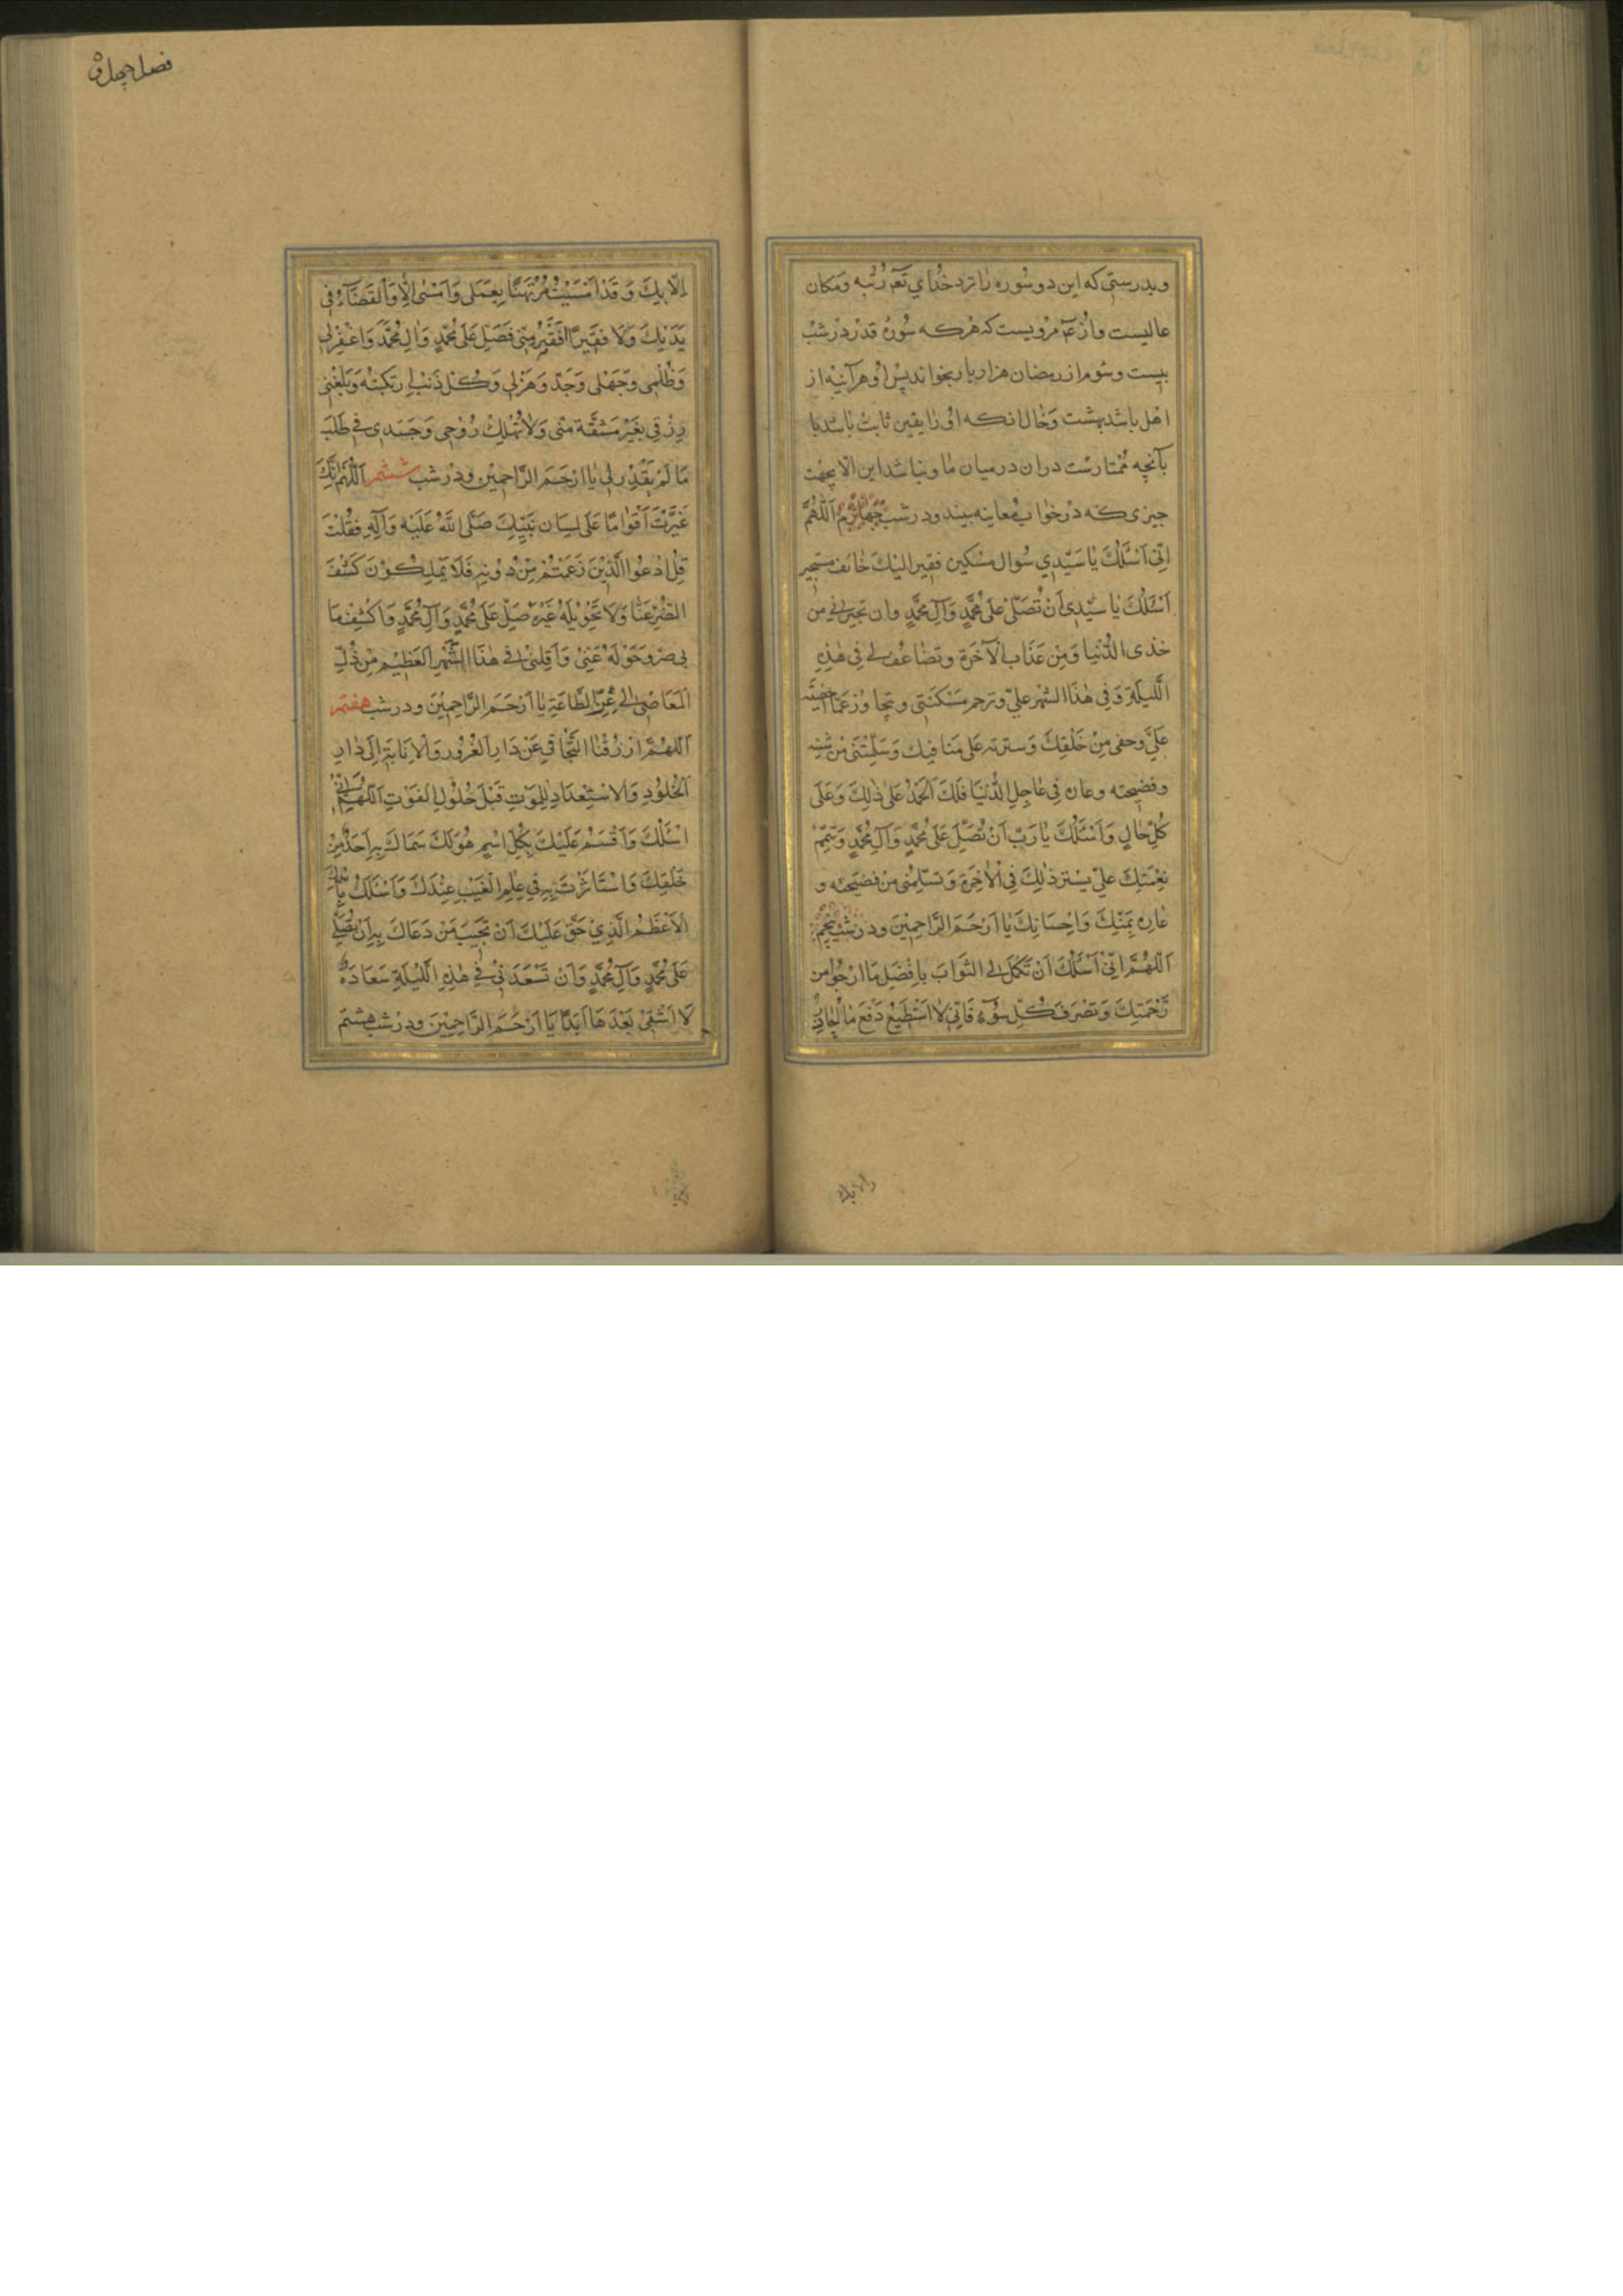 وبدرستی که این دو سوره را نزد خدای تع رتبه ومکان
عالیست واز عۤ مرویست که هرکه سوره قدر در شب
بیست وسوم از رمضان هزار بار بخواند پس او هرآینه از
اهل باشد بهشت وحال انکه او را یقین ثابت باشد با
بآنچه ممتارست دران درمیان ما ونباشد این الا بجهت
چیزی که در خواب معاینه بیند ودر شب چهارم اَللّٰهُمَّ
اِنّی اَسْئَلُكَ یا سَیّدِی سُوال مسْکین فقیر الیكَ خائف مستجیر
اَسْئَلُكَ یا سَیّدی اَنْ تُصَلّیَ عَلی مُحَمَّدٍ وَآلِ مُحَمَّدٍ وان تجیرنی من
خذی الدُّنیا وَمِن عَذَاب الآخَرةِ وتضاعف لی فِی هٰذِهِ
اللَّیلَةِ وَفِی هٰذَا الشهر علیّ وترحم مَسْکَنَتی وتجاوُز عَمّا اخفیته
عَلَیَّ وحفی مِنْ خَلْقِكَ وَسترته عَلی مَنافیك وَسَلَّمْتَنی مِنْ شینه
وفضیحته وعاره فِی عاجِلِ الدُّنیَا فَلَكَ الْحَمْدُ عَلی ذٰلِكَ وَعَلَی
کُلِّ حالٍ وَاَسْئَلُكَ یا رَبِّ اَنْ تُصَلِّیَ عَلَی مُحَمَّدٍ وَآلِ مُحَمَّدٍ وَتتمّم
نِعْمَتِكَ علیّ بِستر ذٰلِكَ فِی الْاٰخِرَةِ وَتسلّمنی من فضیحته و
عاره بِمَنِّكَ وَاِحْسَانِكَ یا اَرْحَمَ الرَّاحِمِینَ ودر شب پنجم
اَللّٰهُمَّ اِنّی اَسْئَلُكَ اَنْ تکمل لی الثَوابَ بِاَفْضَلِ مَا ارْجُوا من
رَحْمَتِكَ وَتَصْرِفَ کُلّ سُوء فَاِنّی لا اَسْتَطِیعُ دَفْعَ ما اُحاذِرُ
الابك
فصل چهل و
اِلّا بِكَ وَقَدْ اَمْسَیْتُ مُرْتَهَنًا بِعَمَلی وَاَمْسٰی الْاَمْرُ وَالْقَضَاءُ فِی
یَدَیْكَ وَلَا فقیرًا افْقَرُ مِنّی فَصَلِّ عَلَی مُحَمّدٍ وَالِ مُحَمَّدٍ وَاغْفِرْلی
وَظُلْمِی وَجَهْلی وَجَدّی وَهَزْلِی وَکُلَّ ذَنْبٍ اِرتَکبتُهُ وَبَلِّغْنِی
رِزْقِی بِغَیْرِ مَشَقَّةٍ مِنّی وَلَا تُهْلِكْ رُوْحِی وَجَسَدِی فِی طَلَبِ
مَا لَمْ تقدّر لِی یا اَرْحَمَ الرَّاحِمِین ودر شب ششم اَللّٰهُمَّ اِنَّكَ
عَیَّرْتَ اَقْوَامًا عَلَی لِسَانِ نَبِیِّكَ صَلَّی اللهُ عَلَیْهِ وَآلِهِ فَقُلْتَ
قُلِ ادْعُوا الَّذِیْنَ زَعَمْتُمْ مِنْ دُونِهِ فَلَا یَمْلِکُوْنَ کَشْفَ
الضُّرِّ عَنّا وَلَا تَحْوِیْلَهُ غَیْرُهُ صَلِّ عَلَی مُحَمَّدٍ وَآلِ مُحَمَّدٍ وَاکْشِفْ مَا
بِی ضر وَحَوّلهُ عَنّی وَانقلنی فِی هٰذَا الشَّهْرِ الْعَظِیْمِ مِنْ ذُلِّ
الْمَعَاصی اِلٰی عِزِّ الطَّاعَةِ یا اَرْحَمَ الرَّاحِمِیْنَ ودر شب هفتم
اَللّٰهُمَّ ارْزُقْنا التَّجافِی عَنْ دَارِ الْغُرُورِ وَالْاِنَابَة اِلَی دَارِ
الْخُلُوْدِ وَالاسْتِعْدَادِ لِلْمَوْتِ قَبْلَ حُلُوْلِ الْفَوْتِ اَللّٰهُمَّ اِنّی
اَسْئَلُكَ وَاَقْسَمْتُ عَلَیْكَ بِکُلِّ اِسْمٍ هُوَ لَكَ سَمّاكَ بِهِ اَحَدٌ مِنْ
خَلْقِكَ وَاسْتَاثَرْتَ بِهِ فِی عِلْمِ الْغَیْبِ عِنْدَكَ وَاَسْئَلُكَ بِاسْمِكَ
الْاَعْظَمِ الَّذِی حَقٌّ عَلَیْكَ اَنْ تُجِیبَ مَنْ دَعَاكَ بِهِ اَنْ تُصَلِّیَ
عَلَی مُحَمَّدٍ وَآلِ مُحَمَّدٍ وَاَنْ تُسْعِدَنِی فِی هٰذِهِ اللَّیْلَةِ سَعَادَةً
لَا اَشْقٰی بَعْدَهَا اَبَدًا یَا اَرْحَمَ الرَّاحِمِیْنَ ودر شب هشتم